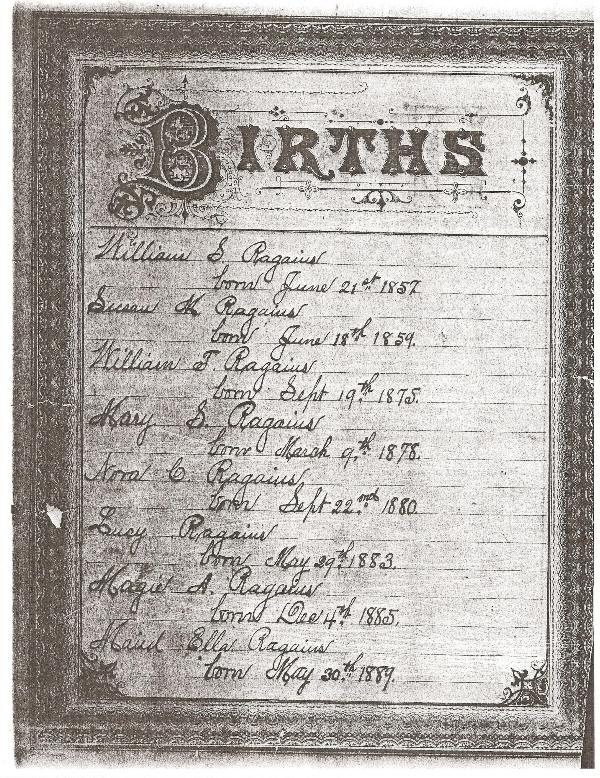 BIRTHS
William S. Ragains
born June 21st 1857
Susan M Ragains
born June 18th 1859.
William F. Ragains
born Sept 19th 1875.
Mary S. Ragains
born March 9th 1878.
Nora C. Ragains
born Sept 22nd 1880
Lucy Ragains
born May 29th 1883.
Magie A. Ragains
born Dec 4th 1885.
Maud Ella Ragains
born May 30th 1889.